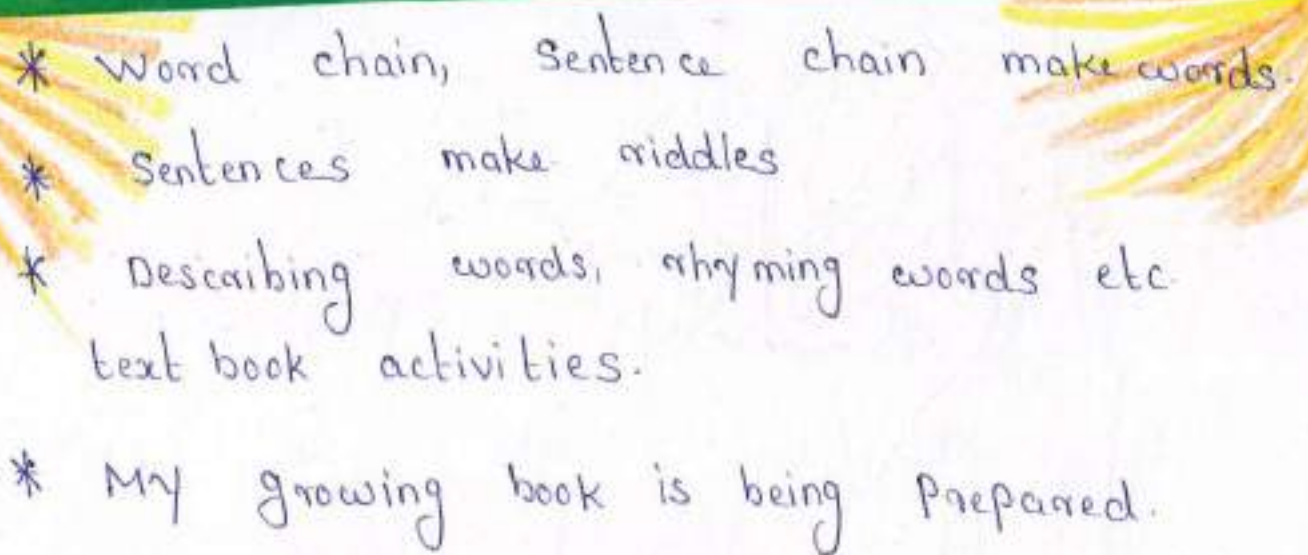 * Word chain, Sentence chain make words.
* Sentences make riddles
* Describing words, rhyming words etc.
text book activities.
* My growing book is being Prepared.